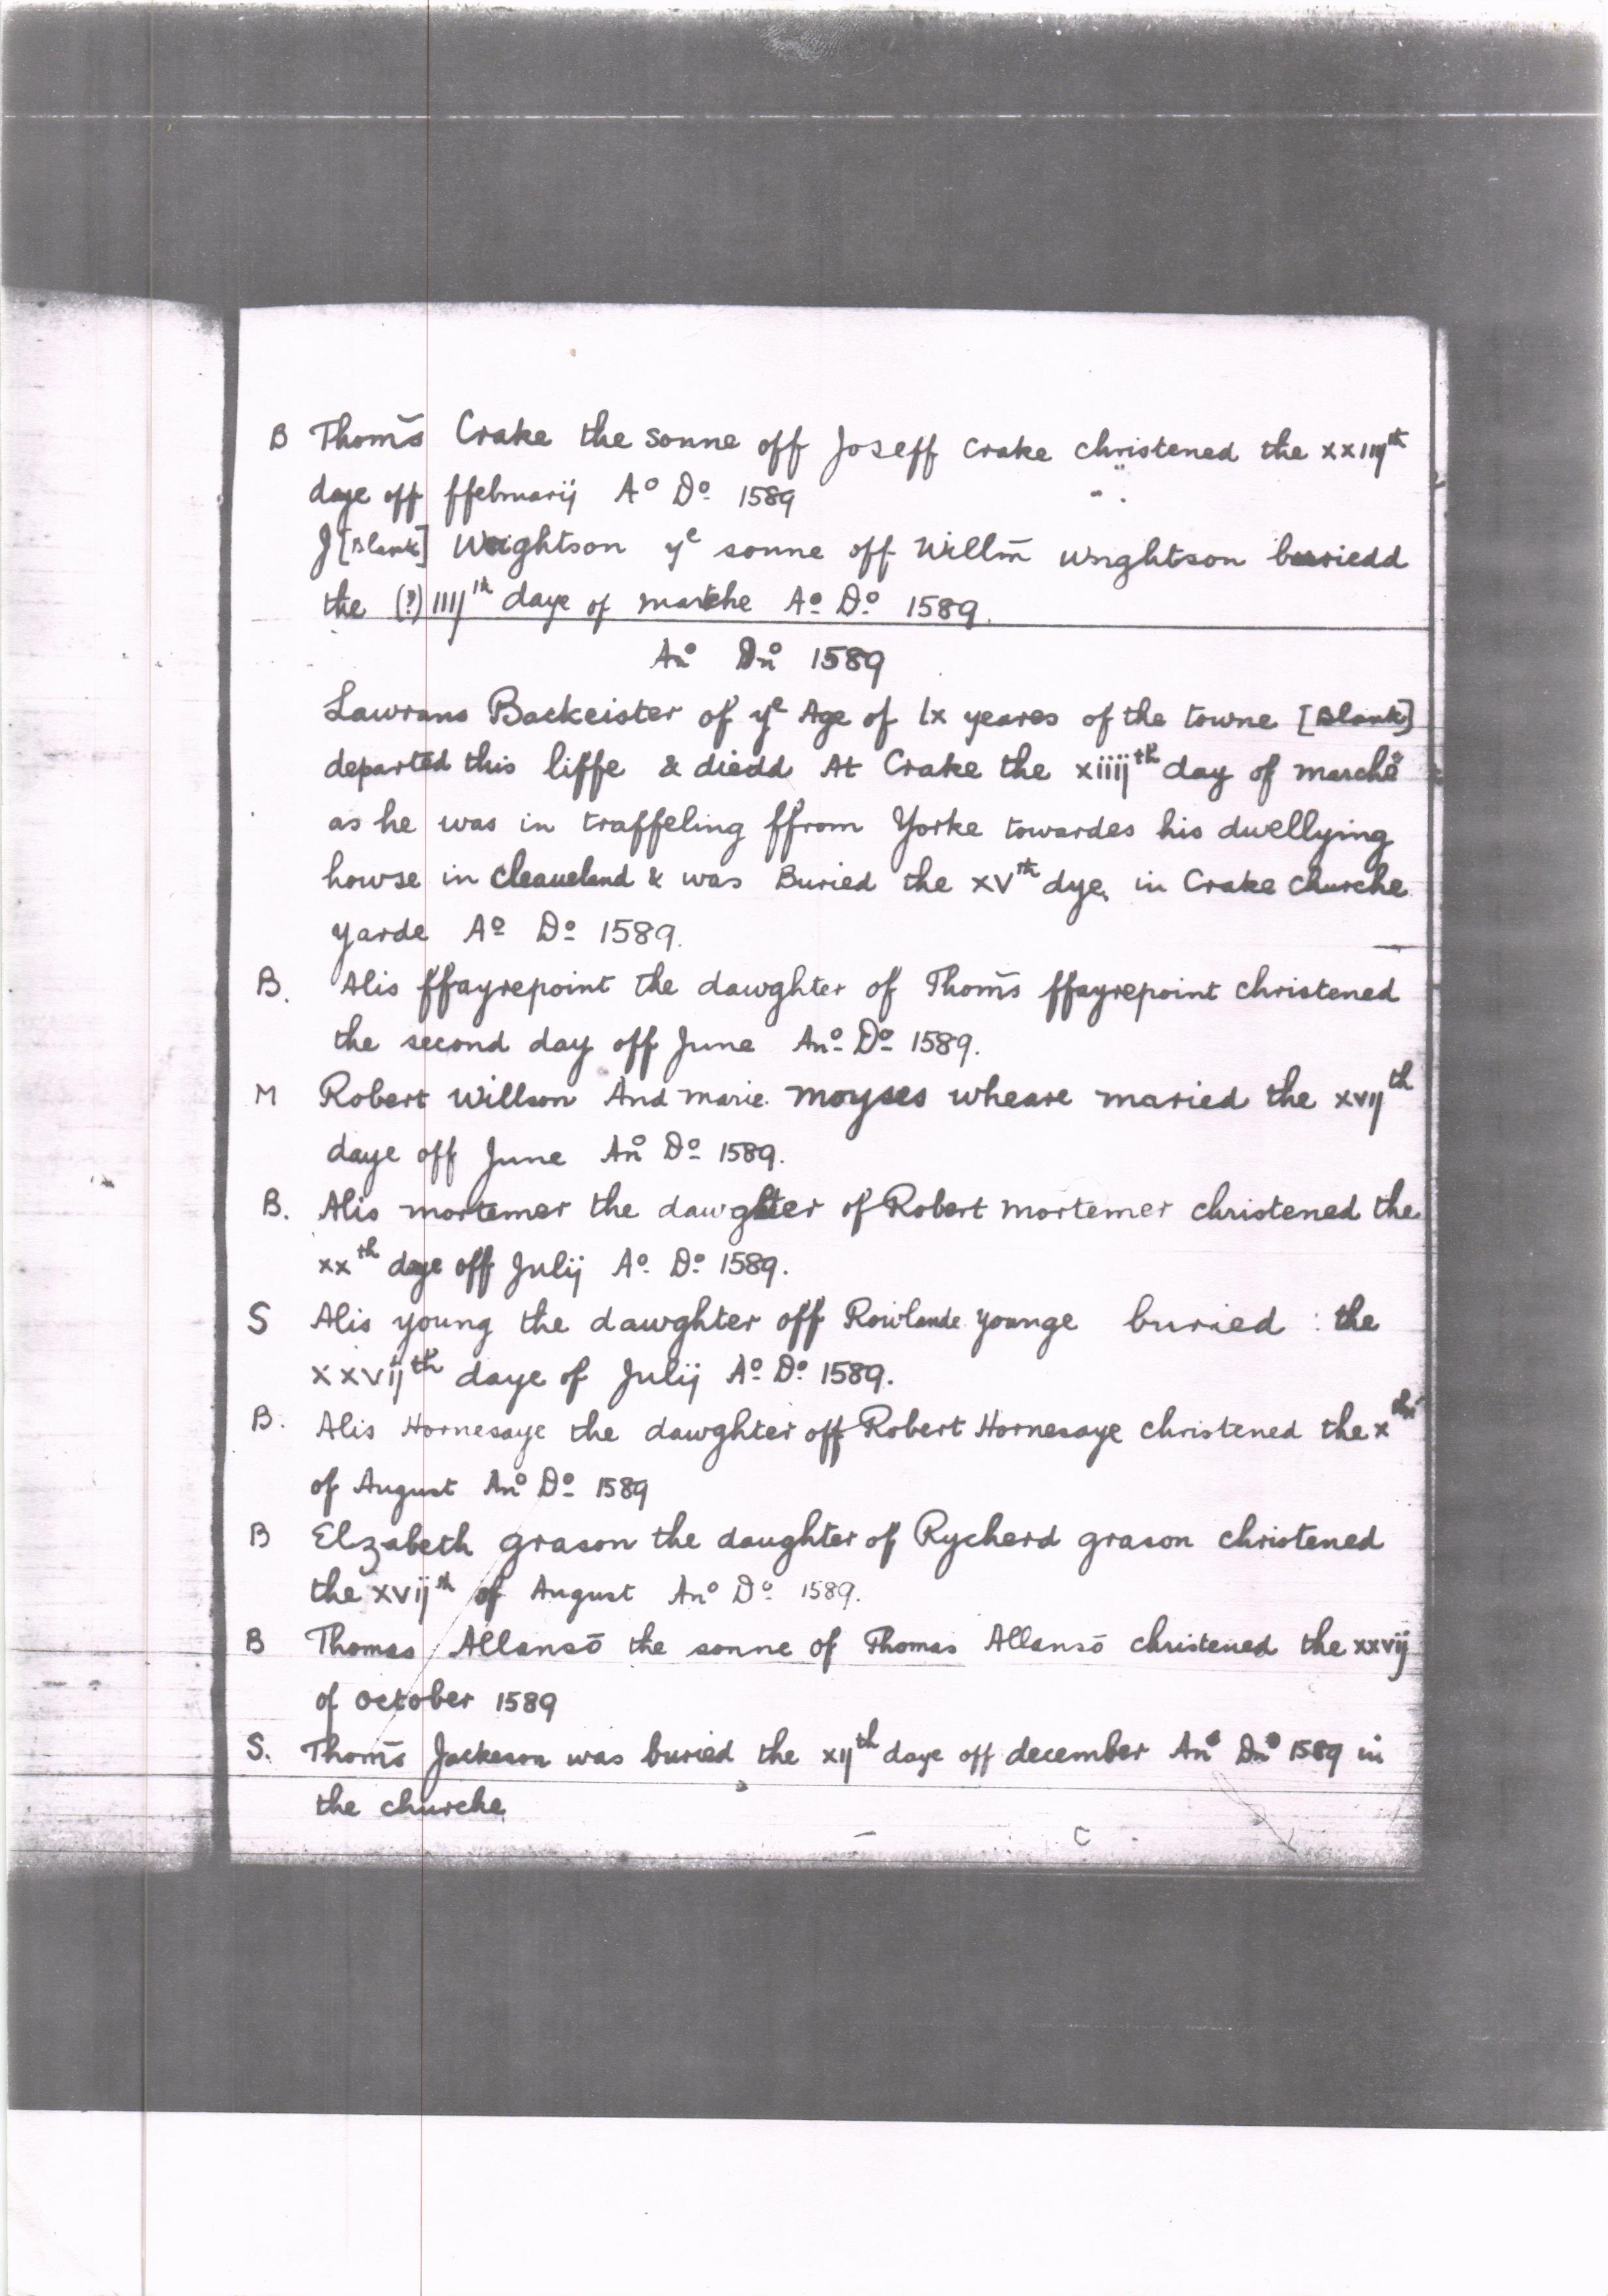 B Thom̃s Crake the sonne off Joseff Crake christened the xxiiijth
daye off ffebruarij Aº Dº 1589
J [Blank] Wrightson ye sonne off Willm̃ Wrightson buriedd
the (?) iiijth daye of marche Aº Dº 1589.
Anº Dnº 1589
Lawrans Backeister of ye Age of lx yeares of the towne [Blank]
departed this liffe & diedd At Crake the xiiijth day of marche
as he was in traffeling ffrom Yorke towardes his dwellying
howse in Cleaueland & was Buried the xvth dye in Crake Churche
Yarde Aº Dº 1589.
B. Alis ffayrepoint the dawghter of Thom̃s ffayrepoint christened
the second day off June Anº Dº 1589.
M Robert Willson And marie moyses wheare maried the xvijth
daye off June Anº Dº 1589.
B. Alis mortemer the dawghter of Robert mortemer christened the
xxth daye off Julij Aº Dº 1589.
S Alis young the dawghter off Rowlande younge buried : the
xxvijth daye of Julij Aº Dº 1589.
B. Alis Hornesaye the dawghter off Robert Hornesaye christened the xth
of August Anº Dº 1589
B Elzabeth grason the daughter of Rycherd grason christened
the xvijth of August Anº Dº 1589.
B Thomas Allansō the sonne of Thomas Allansō christened the xxvij
of October 1589
S. Thom̃s Jackeson was buried the xijth daye off december Anº Dnº 1589 in
the churche